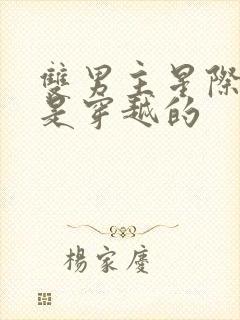 雙男主星際
是穿越的
楊家慶